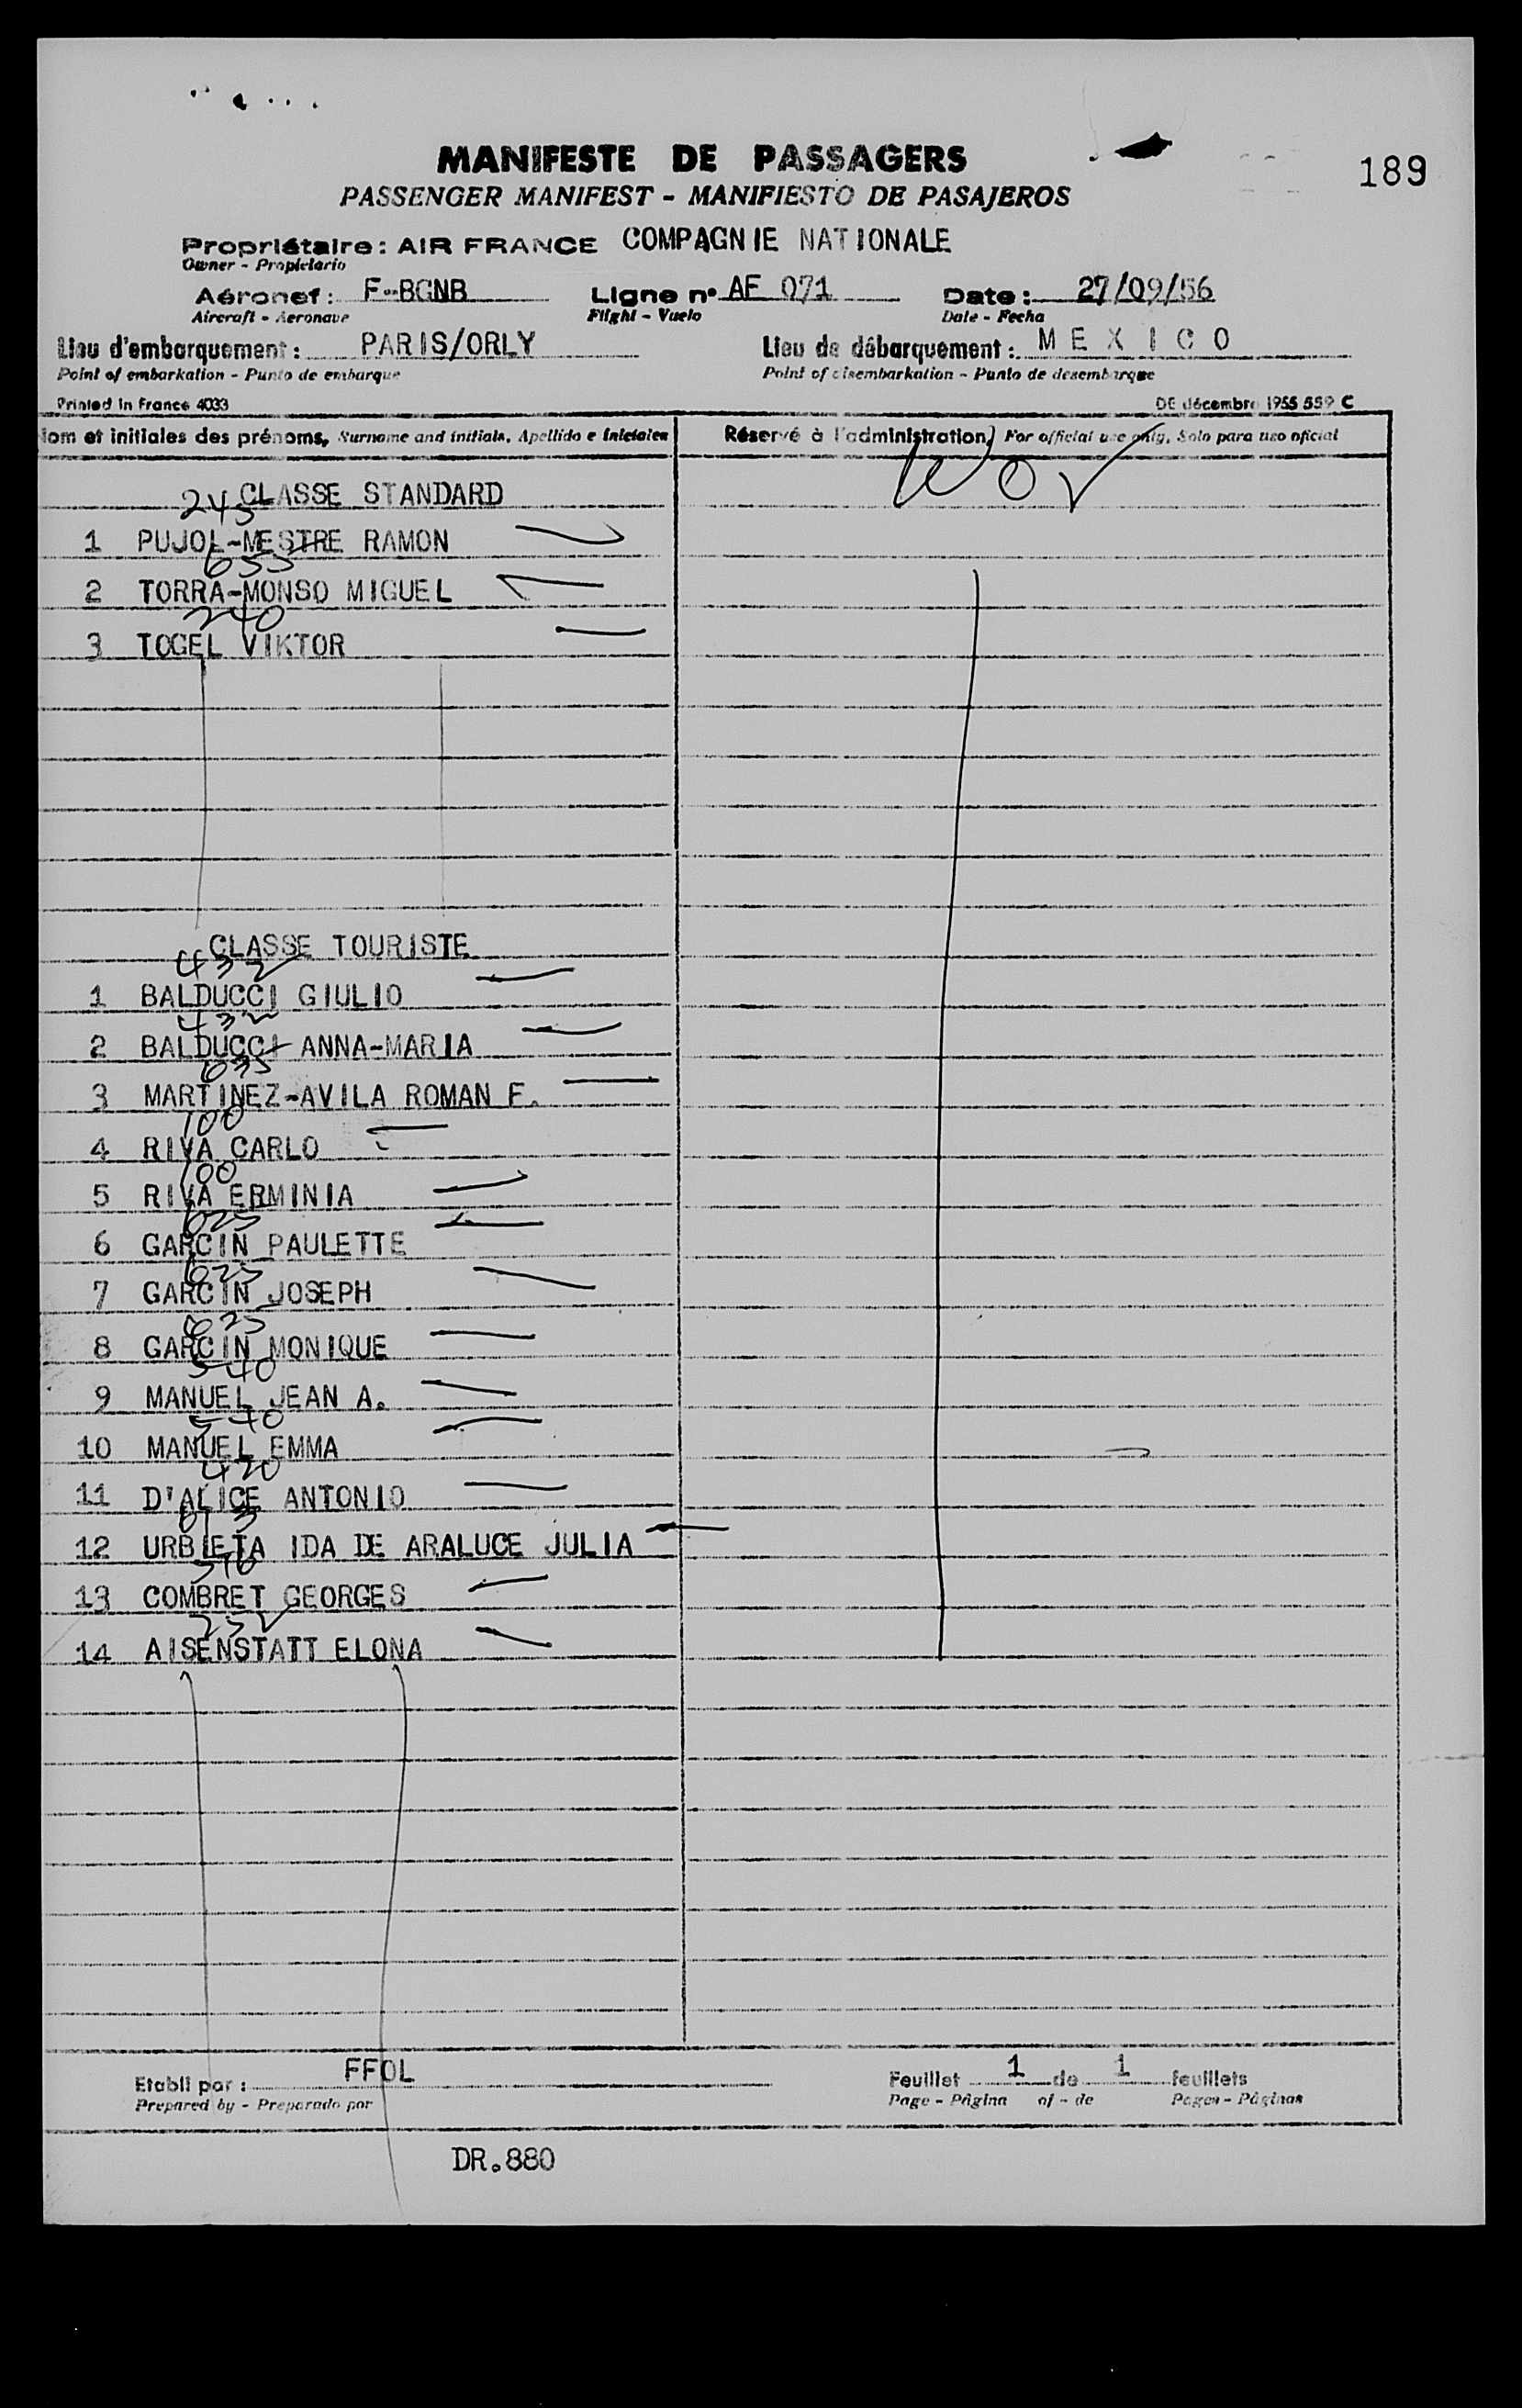 MANIFESTE DE PASSAGERS
189
PASSENGER MANIFEST - MANIFIESTO DE PASAJEROS
Propriétaire : AIR FRANCE COMPAGNIE NATIONALE
Owner - Propietario
Aéronef : F-BGNB Ligne n° AF 071 Date : 27/09/56
Aircraft - Aeronave Flight - Vuelo Date - Fecha
Lieu d'embarquement : PARIS/ORLY Lieu de débarquement : MEXICO
Point of embarkation - Punto de embarque Point of disembarkation - Punto de desembarque
Printed in France 4033 DE décembre 1955 559 C
Nom et initiales des prénoms, Surname and initials, Apellido e iniciales Réservé à l'administration, For official use only, Solo para uso oficial
CLASSE STANDARD
245
1 PUJOL-MESTRE RAMON
655
2 TORRA-MONSO MIGUEL
240
3 TOGEL VIKTOR
CLASSE TOURISTE
432
1 BALDUCCI GIULIO
432
2 BALDUCCI ANNA-MARIA
635
3 MARTINEZ-AVILA ROMAN F.
100
4 RIVA CARLO
100
5 RIVA ERMINIA
625
6 GARCIN PAULETTE
625
7 GARCIN JOSEPH
625
8 GARCIN MONIQUE
540
9 MANUEL JEAN A.
540
10 MANUEL EMMA
420
11 D'ALICE ANTONIO
613
12 URBIETA IDA DE ARALUCE JULIA
516
13 COMBRET GEORGES
252
14 AISENSTATT ELONA
Etabli par : FFOL Feuillet 1 de 1 feuillets
Prepared by - Preparado por Page - Página of - de Pages - Páginas
DR.880